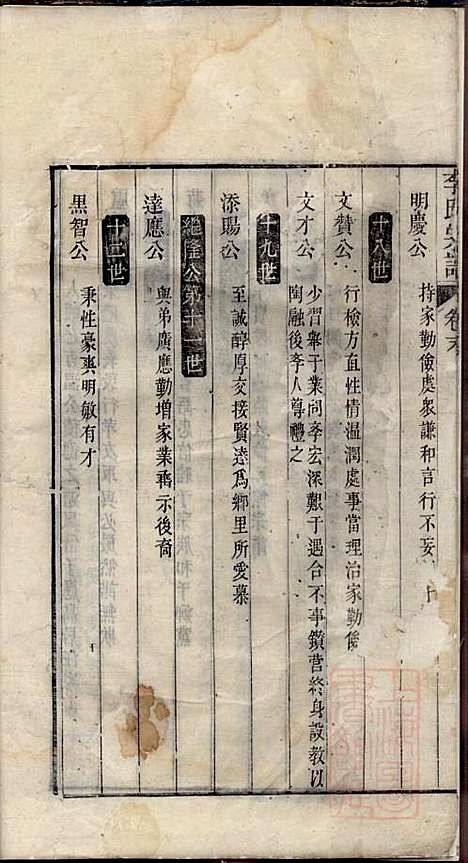 李氏宗譜 卷末
明慶公
持家勤儉處衆謙和言行不妄
十八世
文贊公
行檢方直性情温潤處事當理治家勤儉
文才公
少習舉于業問李宏深艱于遇合不事鑽营終身設教以
陶融後李人尊禮之
十九世
添賜公
至誠醇厚交接賢逵爲鄉里所愛慕
繼隆公第十一世
達應公
與弟廣應勤增家業番示後裔
十二世
黒智公
秉性豪爽明敏有才